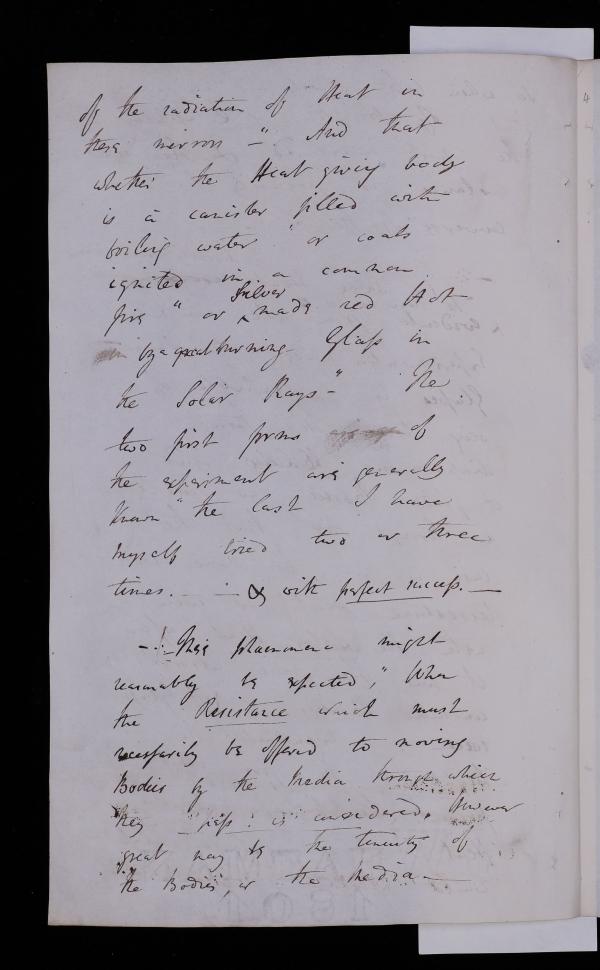 of the radiation of Heat in
these mirrors — " And that
whether the Heat giving body
is a canister filled with
boiling water " or coals
ignited in a common
fire " or Silver made red Hot
by a great burning Glass in
the Solar Rays - " The
two first forms of
the experiment are generally
known " the last I have
myself tried two or three
times. — & with perfect success. —
- These phaenomena might
reasonably be expected, " When
the Resistance which must
necessarily be offered to moving
Bodies by the Media through which
they pass is considered, However
great may be the tenuity of
the Bodies, or the Media —